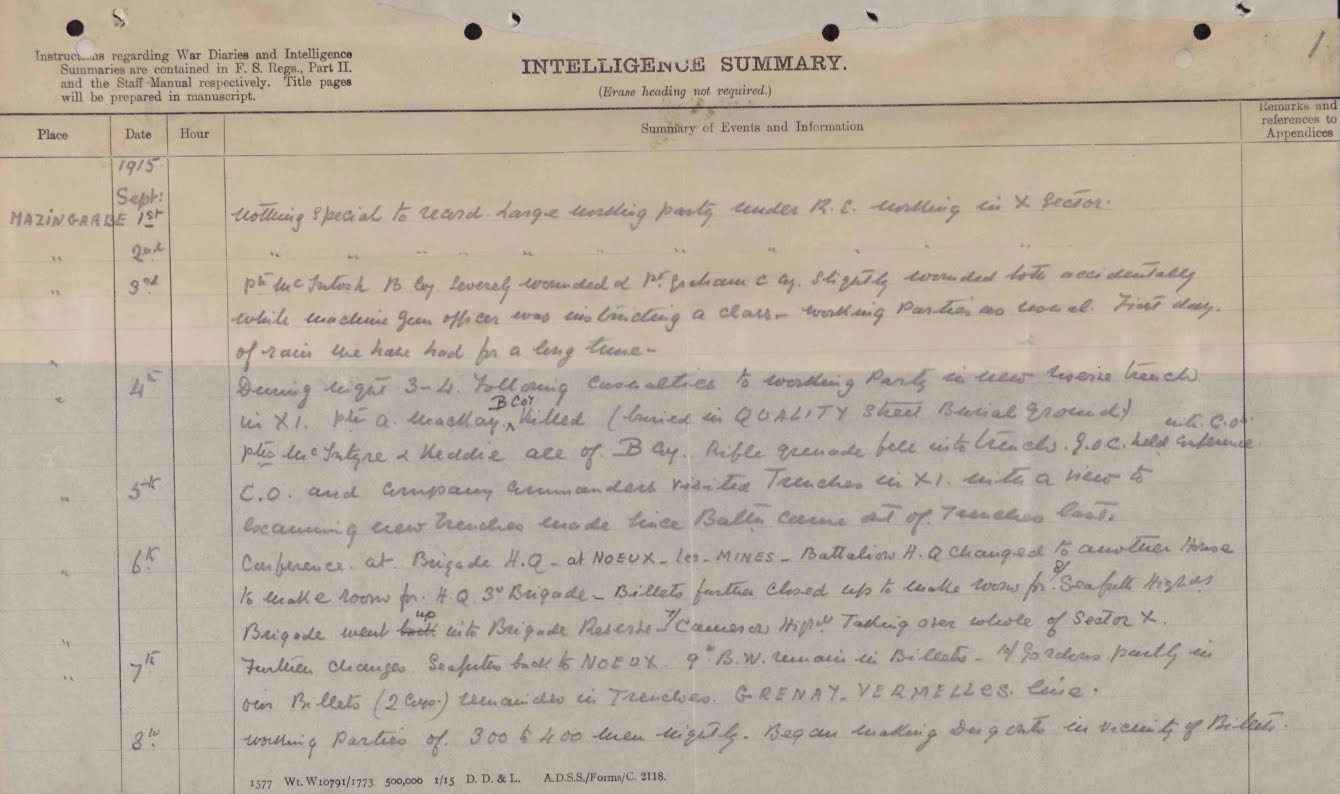 1
Instructions regarding War Diaries and Intelligence
Summaries are contained in F. S. Regs., Part II.
and the Staff Manual respectively. Title pages
will be prepared in manuscript.
INTELLIGENCE SUMMARY.
(Erase heading not required.)
Place Date Hour Summary of Events and Information Remarks and references to Appendices
1915
Sept:
MAZINGARBE 1st Nothing special to record. Large working party under R.E. working in X Sector.
" 2nd " " " " " " " " "
" 3rd Pte McIntosh B Coy. Severely wounded & Pt. Graham C Coy. Slightly wounded both accidentally
while machine Gun officer was instructing a class - working Parties as usual. First day
of rain we have had for a long time -
" 4th During night 3-4. Following Casualties to working Party in new reserve trench
in X1. Pte A. MacKay B Coy Killed (buried in QUALITY Street Burial Ground)
Ptes McIntyre & Keddie all of B Coy. Rifle grenade fell into trench. G.O.C. held Conference with C.O's
" 5th C.O. and Company Commanders visited Trenches in X1. with a view to
examining new trenches made since Battn came out of Trenches last.
" 6th Conference at Brigade H.Q - at NOEUX - les - MINES - Battalion H.Q changed to another House
to make room for H.Q 3rd Brigade - Billets further closed up to make room for 8/ Seaforth Highrs
" Brigade went back up into Brigade Reserve 7/ Cameron High Taking over whole of Sector X.
" 7th Further changes. Seaforths back to NOEUX. 9th B.W. remain in Billets - Gordons partly in
our Billets (2 Coys.) remainder in Trenches. GRENAY - VERMELLES line.
8th Working Parties of 300 to 400 men nightly. Began making Dug outs in vicinity of Billets.
1577 Wt. W10791/1773 500,000 1/15 D. D. & L. A.D.S.S./Forms/C. 2118.